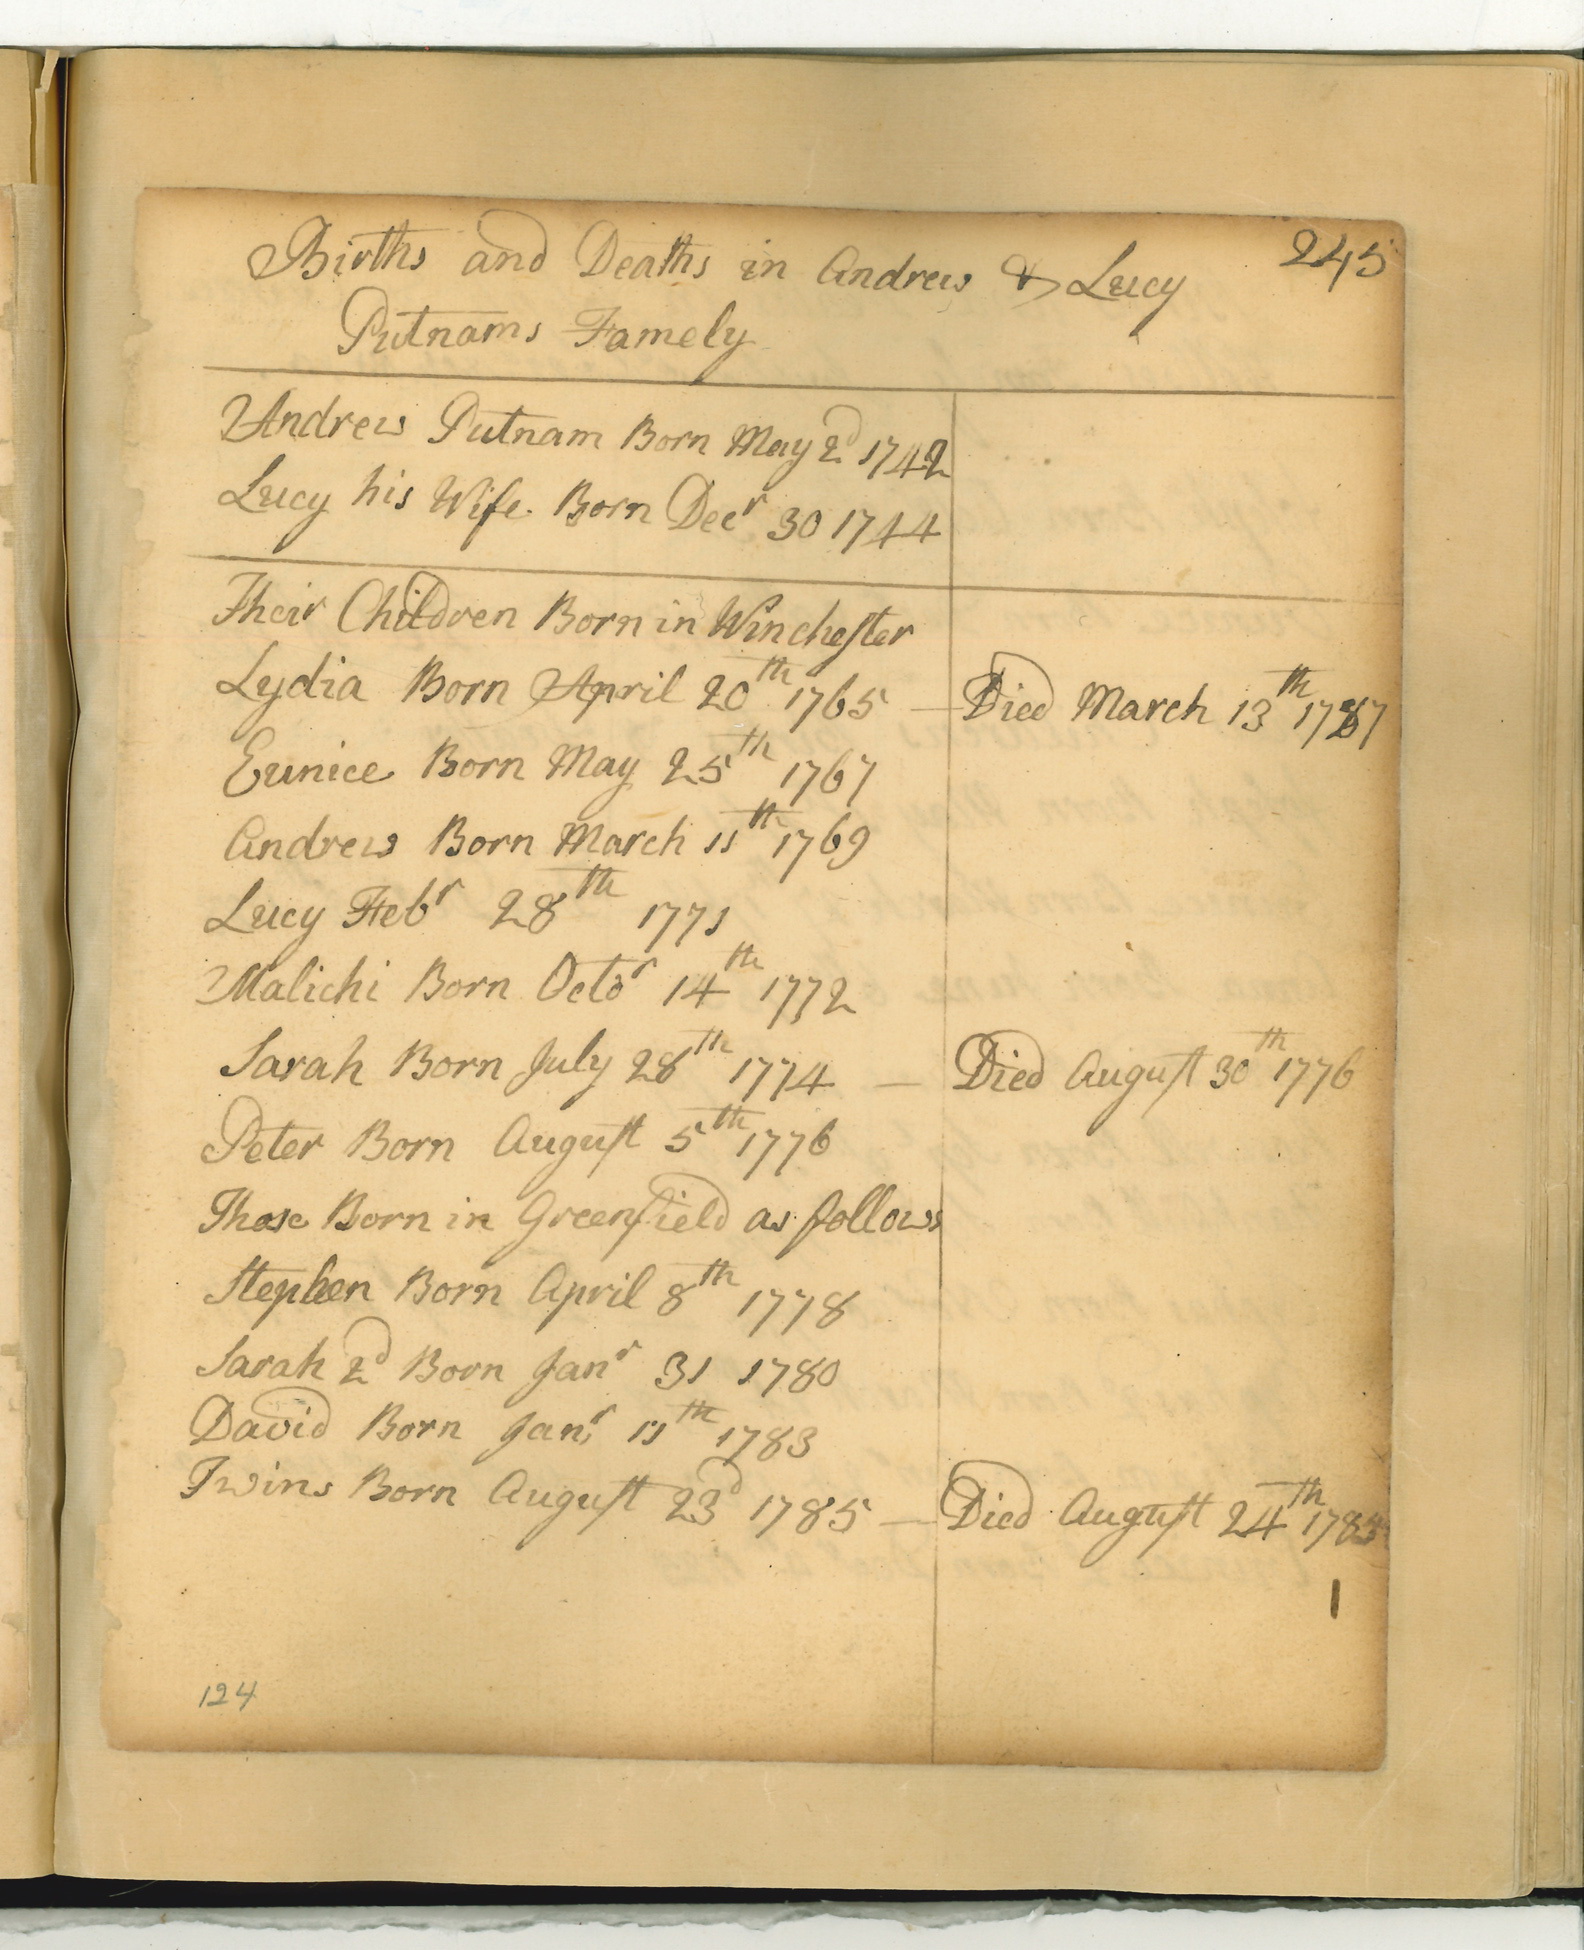 245
Births and Deaths in Andrew & Lucy
Putnams Famely
Andrew Putnam Born May 2d 1742
Lucy his Wife Born Decr 30 1744
Their Children Born in Winchester
Lydia Born April 20th 1765 — Died March 13th 1787
Eunice Born May 25th 1767
Andrew Born March 11th 1769
Lucy Febr 28th 1771
Malichi Born Octor 14th 1772
Sarah Born July 28th 1774 — Died August 30th 1776
Peter Born August 5th 1776
Those Born in Greenfield as follows
Stephen Born April 8th 1778
Sarah 2d Born Janr 31 1780
David Born Janr 11th 1783
Twins Born August 23d 1785 — Died August 24th 1785
1
124